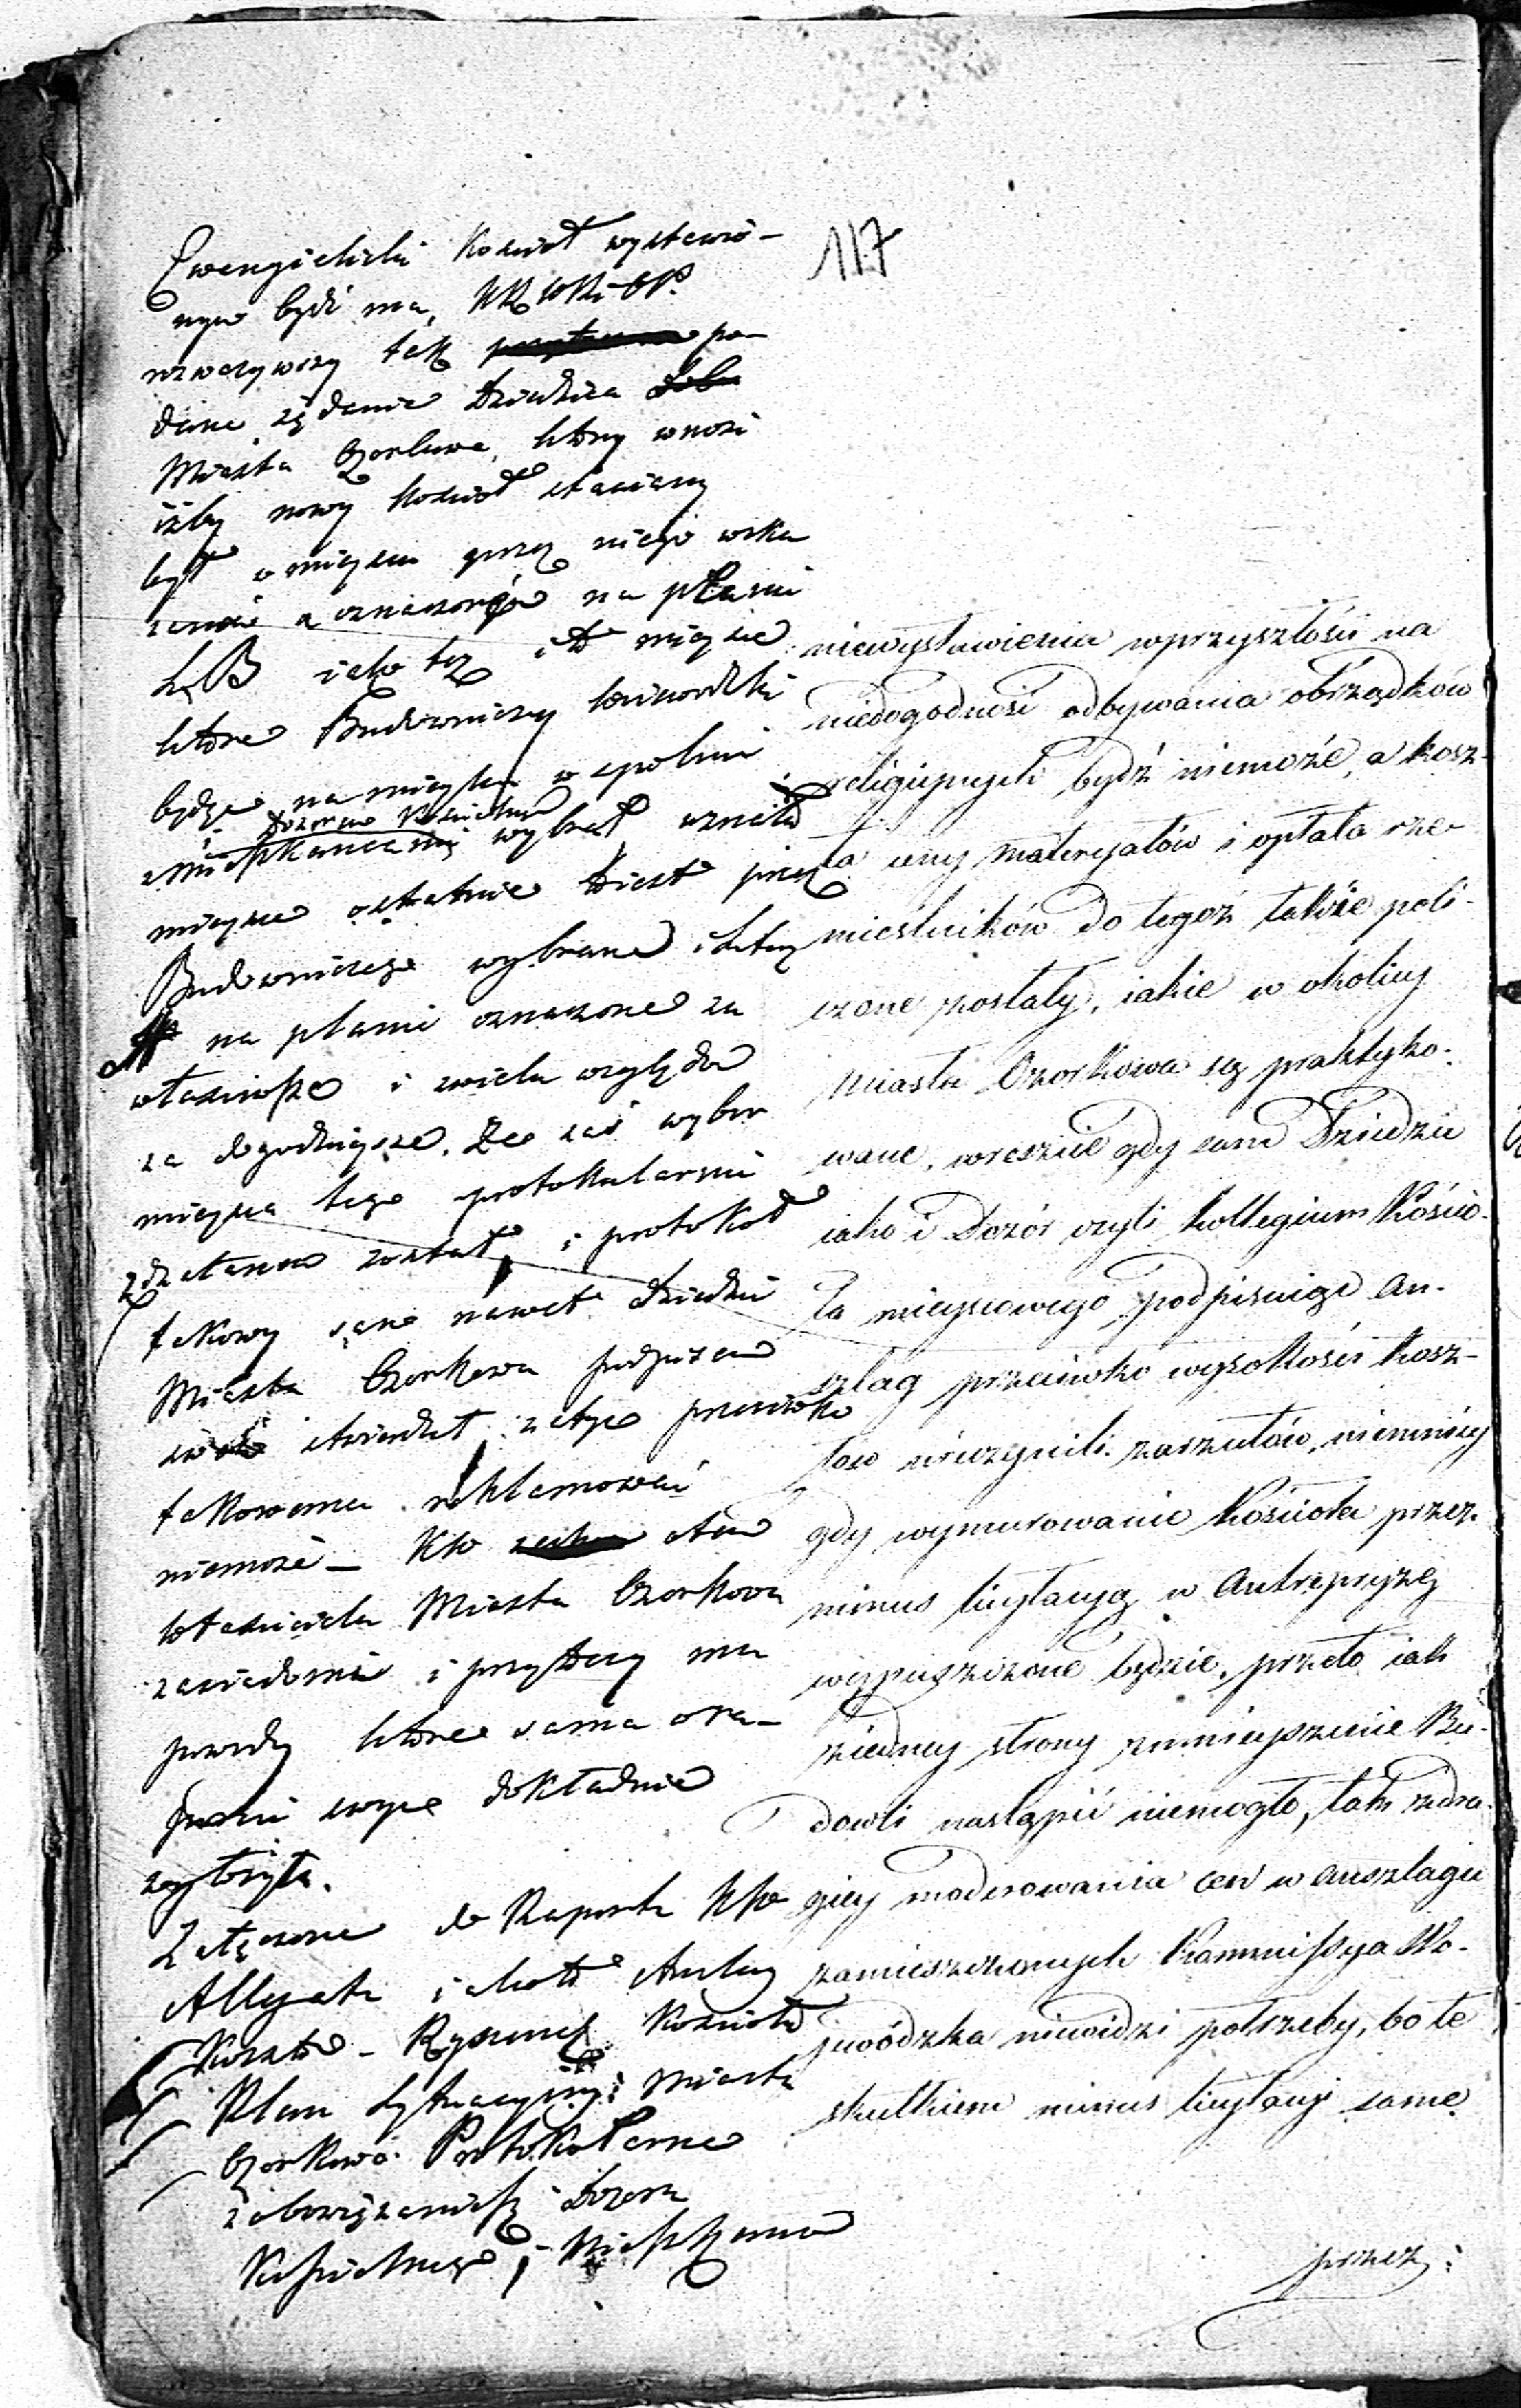 117
Ewangielicki Kościoł wystawio-
nym bydź ma, KRWRiOP.
rozważywszy tak po-
dane żądanie Dziedzica
Miasta Ozorkowa, który wnosi
iżby nowy Kościoł stawiany
był w mieyscu przez niego wska
zane a oznaczone na planie
L. B iako też i to mieysce
które Budowniczy
będąc na mieyscu wspolnie
z Dozorem Kościelnym
wybrał uznała
mieysce ostatnie to iest przez
Budowniczego wybrane i Literą
A na planie oznaczone za
właściwsze i z wielu względów
za dogodnieysze. Że zaś wybór
mieysca tego protokularnie
zdziałanem został, i protokoł
takowy sam nawet Dziedzic
Miasta Ozorkowa podpisem
swoim stwierdził, zatym przeciwko
takowemu reklamować
niemoże – KW o tem
Właściciela Miasta Ozorkowa
zawiadomi i przytoczy mu
powody które sama w ra-
porcie swym dokładnie
wyłożyła.
Załączone do Raportu KW
Allegata iakoto Anszlag
Kosztów – Rysunek Kościoła
Plan sytuacyiny Miasta
Ozorkowa Protokolarne
zobowiązanie się Dozoru
Kościelnego, i
niewystawienia w przyszłości na
niedogodność odbywania obrządków
religiynych bydź niemoże, a kosz-
ta ceny materyałów i opłata rze-
mieślników do tegoż także poli-
czone zostały, iakie w okolicy
Miasta Ozorkowa są praktyko-
wane, wreszcie gdy sam Dziedzic
iako i Dozór czyli Kollegium Kościo-
ła mieyscowego podpisuiąc An-
szlag przeciwko wysokości kosz-
tow nieuczynili zarzutów, niemniéy
gdy wymurowanie Kościoła przez
minus licytacyą w Antrepryzę
wypuszczone będzie, przeto iak
ziedney strony zmnieyszenie Bu-
dowli nastąpić niemogło, tak zdru-
giey moderowania cen w anszlagu
zamieszczonych Kommissya Wo-
jewódzka niewidzi potrzeby, bo te
skutkiem minus licytacyi same
przez